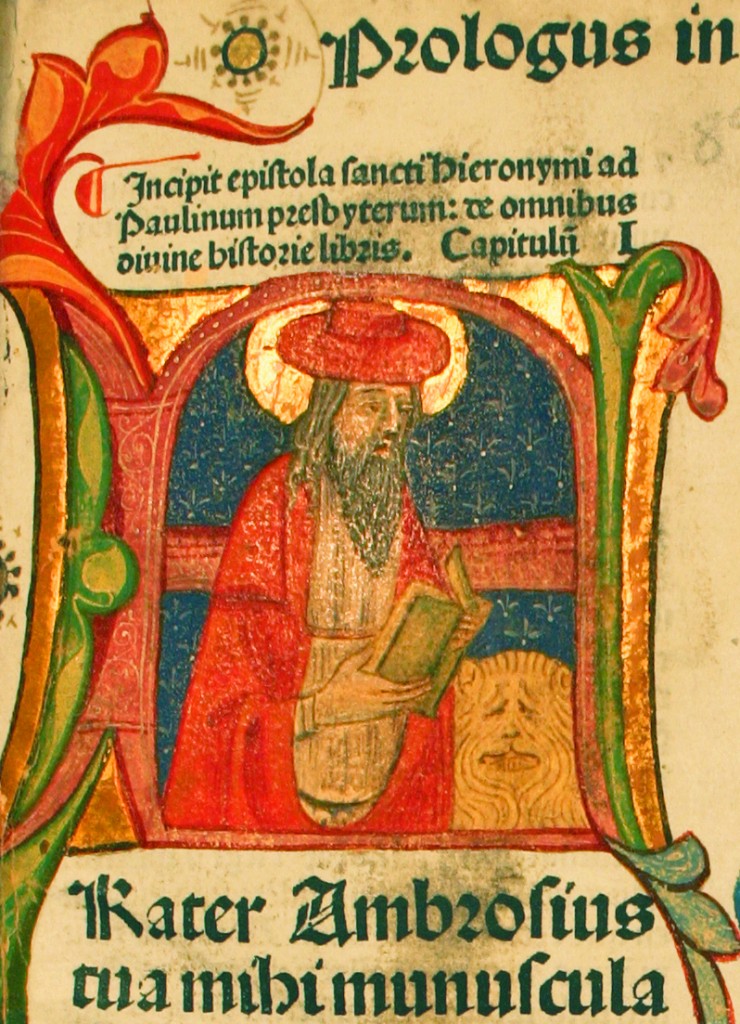 Prologus in
Incipit epiſtola ſancti Hieronymi ad
Paulinum preſbyterum: de omnibus
diuine hiſtorie libris. Capitulū I
Rater Ambroſius
tua mihi munuſcula